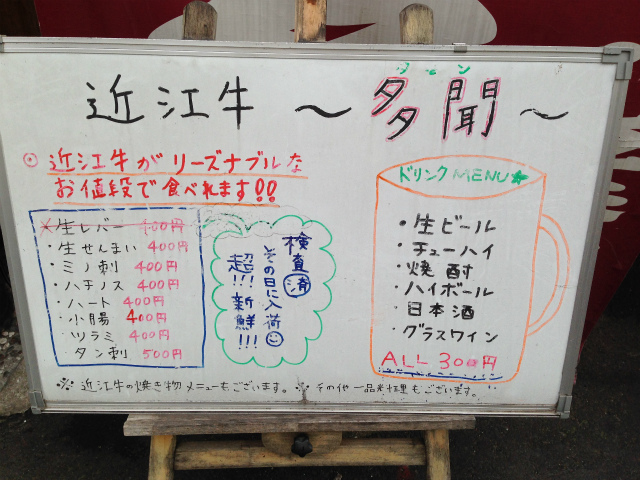 近江牛 〜 多聞 〜
タモン
◎近江牛がリーズナブルな
お値段で食べれます!!
×生レバー 400円
・生せんまい 400円
・ミノ刺 400円
・ハチノス 400円
・ハート 400円
・小腸 400円
・ツラミ 400円
・タン刺 500円
検査済
その日に入荷
超!!!新鮮!!!
ドリンクMENU★
・生ビール
・チューハイ
・焼酎
・ハイボール
・日本酒
・グラスワイン
ALL 300円
※近江牛の焼き物メニューもございます。※その他一品料理もございます。